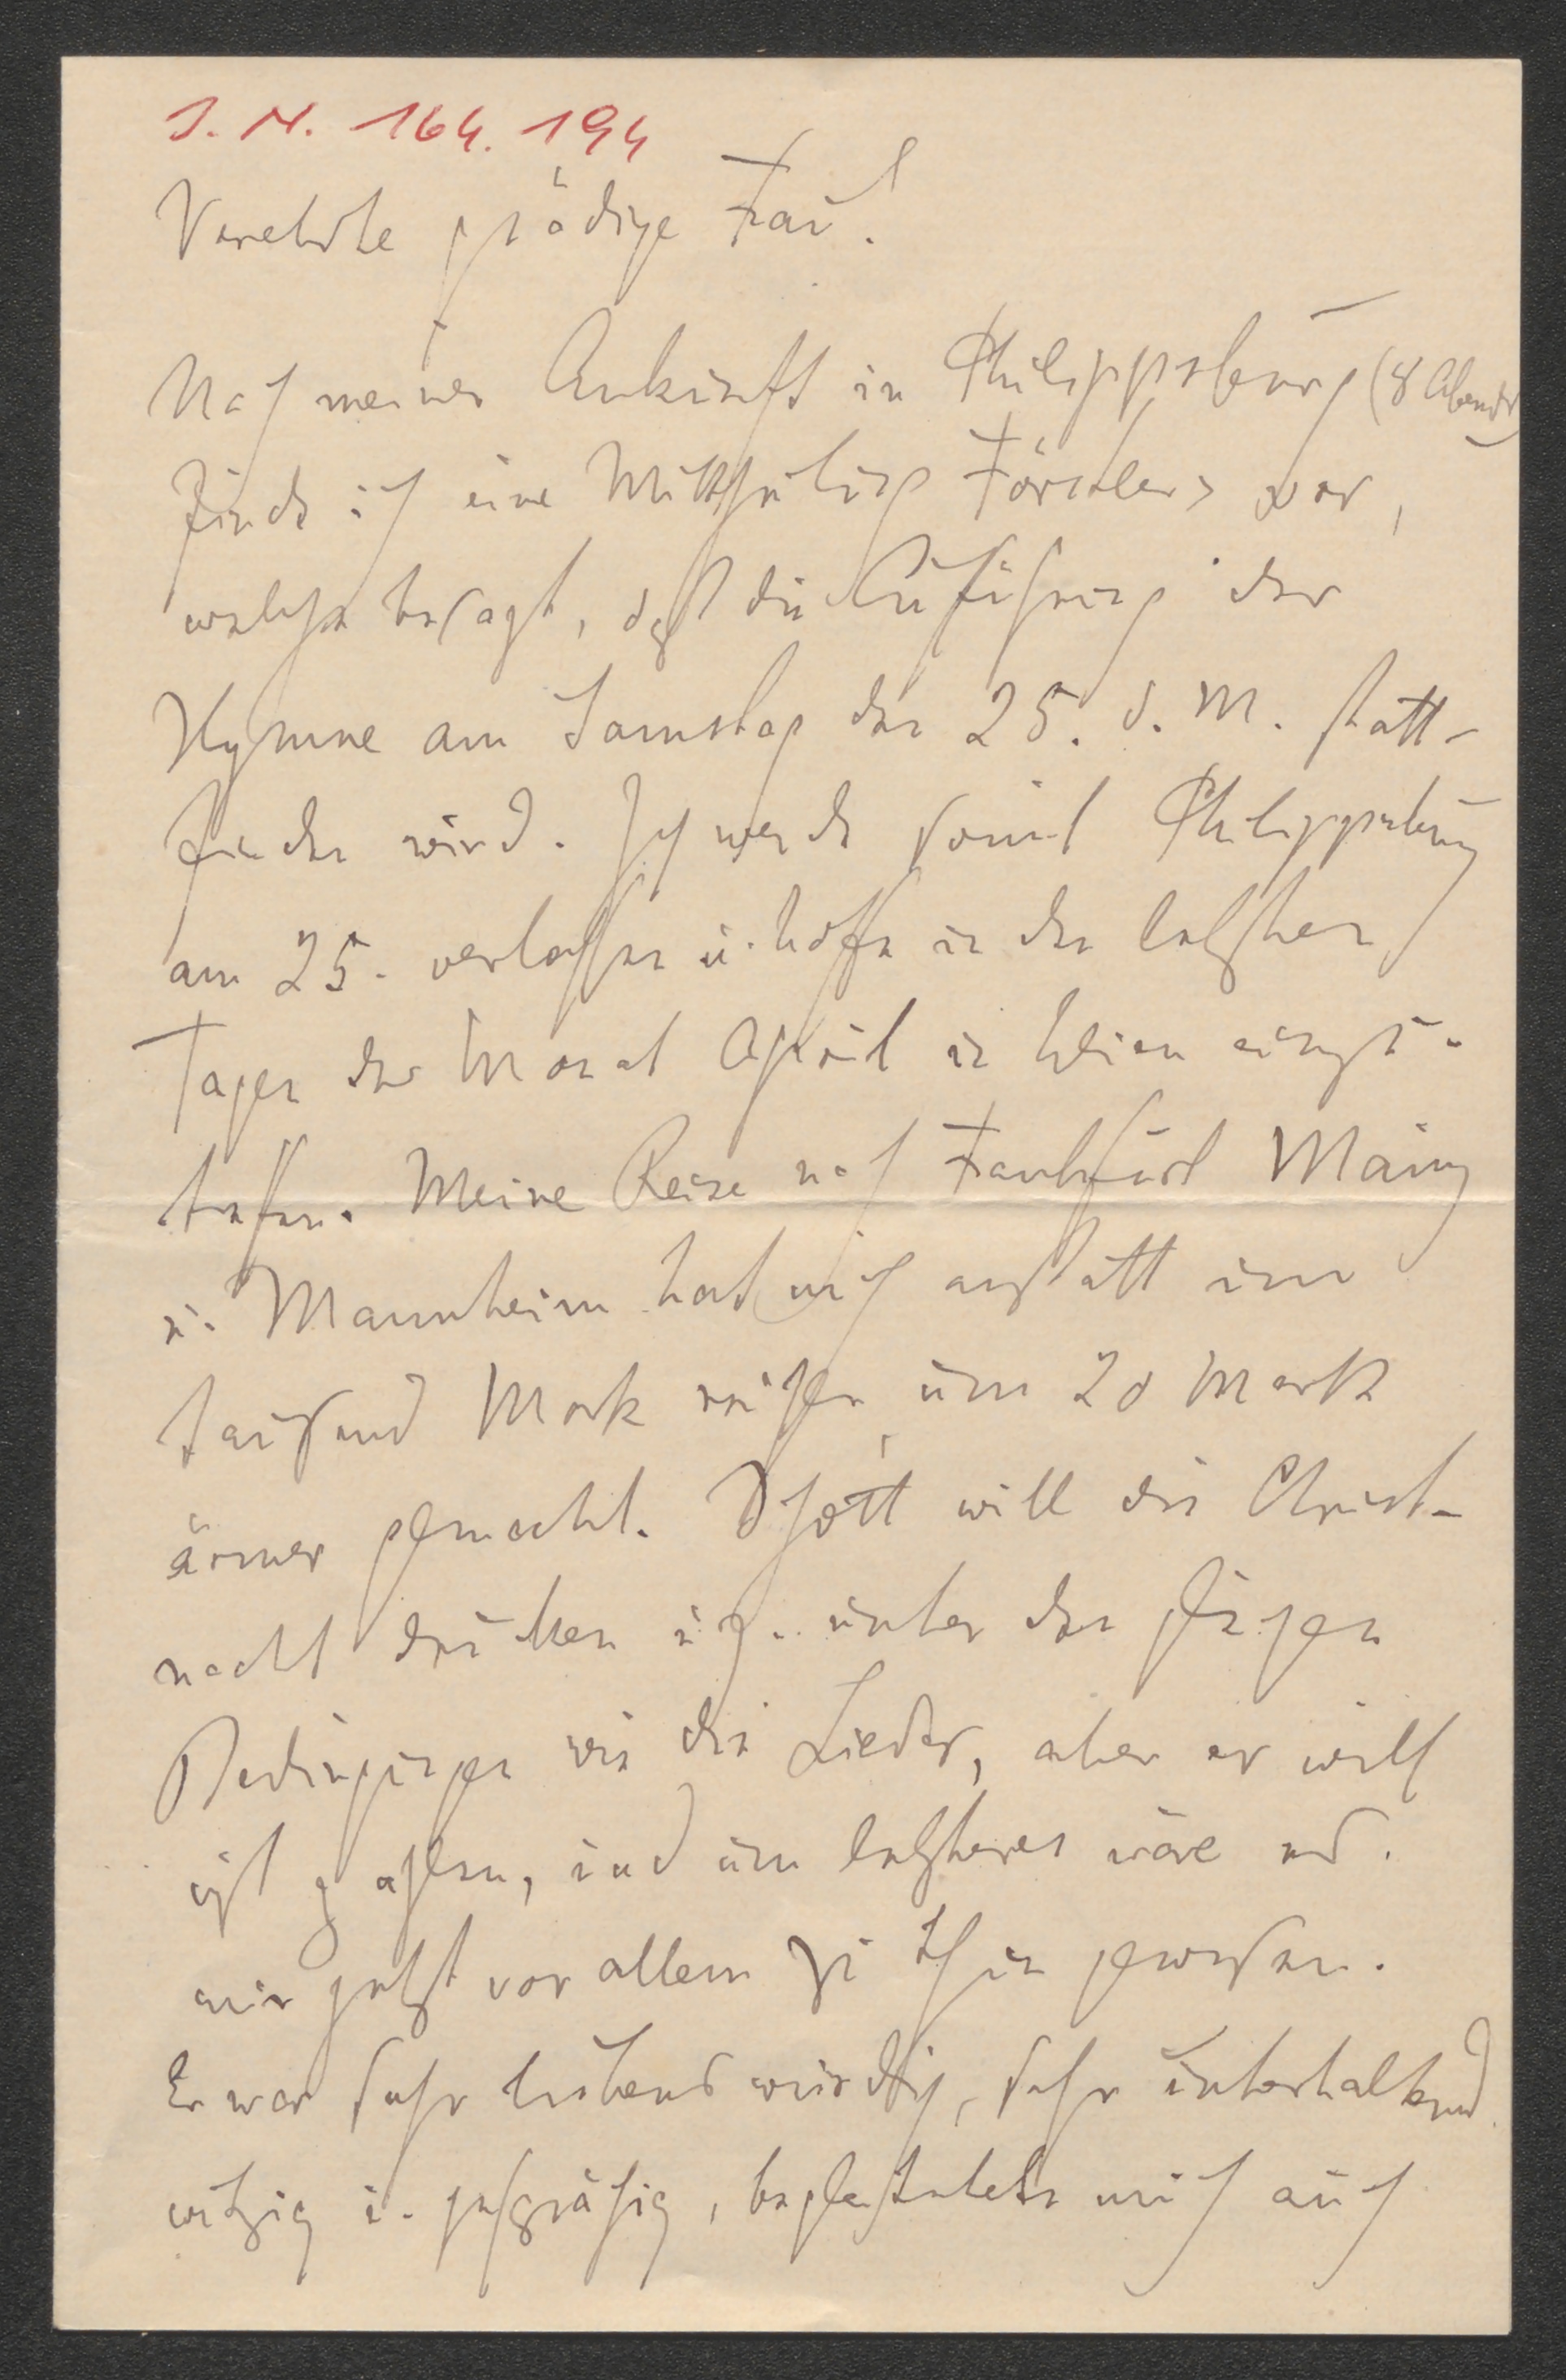 I. N. 164.194
Verehrte gnädige Frau!
Nach meiner Ankunft in Philippsburg (8 Abends)
finde ich eine Mittheilung Förstlers vor,
welche besagt, daß die Aufführung der
Hymne am Samstag den 25. d. M. statt-
finden wird. Ich werde somit Philippsburg
am 25. verlassen u. hoffe in den letzten
Tagen des Monat April in Wien einzu-
treffen. Meine Reise nach Frankfurt Mainz
u. Mannheim hat mich anstatt um
tausend Mark reicher um 20 Mark
ärmer gemacht. Schott will die Christ-
nacht drucken u. z. unter den gleichen
Bedingungen wie die Lieder, aber er will
nicht zahlen, und um letzteres wäre es
mir jetzt vor allem zu thun gewesen.
Er war sehr liebenswürdig, sehr unterhaltend
witzig u. gesprächig, begleitete mich auch